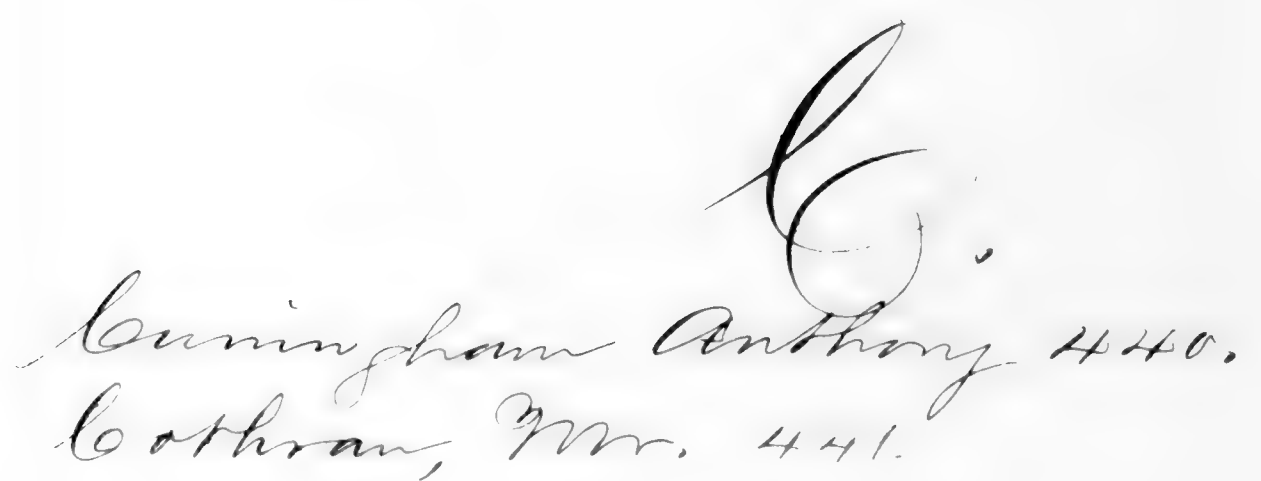 C.
Cuningham Anthony 440.
Cothran, Mr. 441.